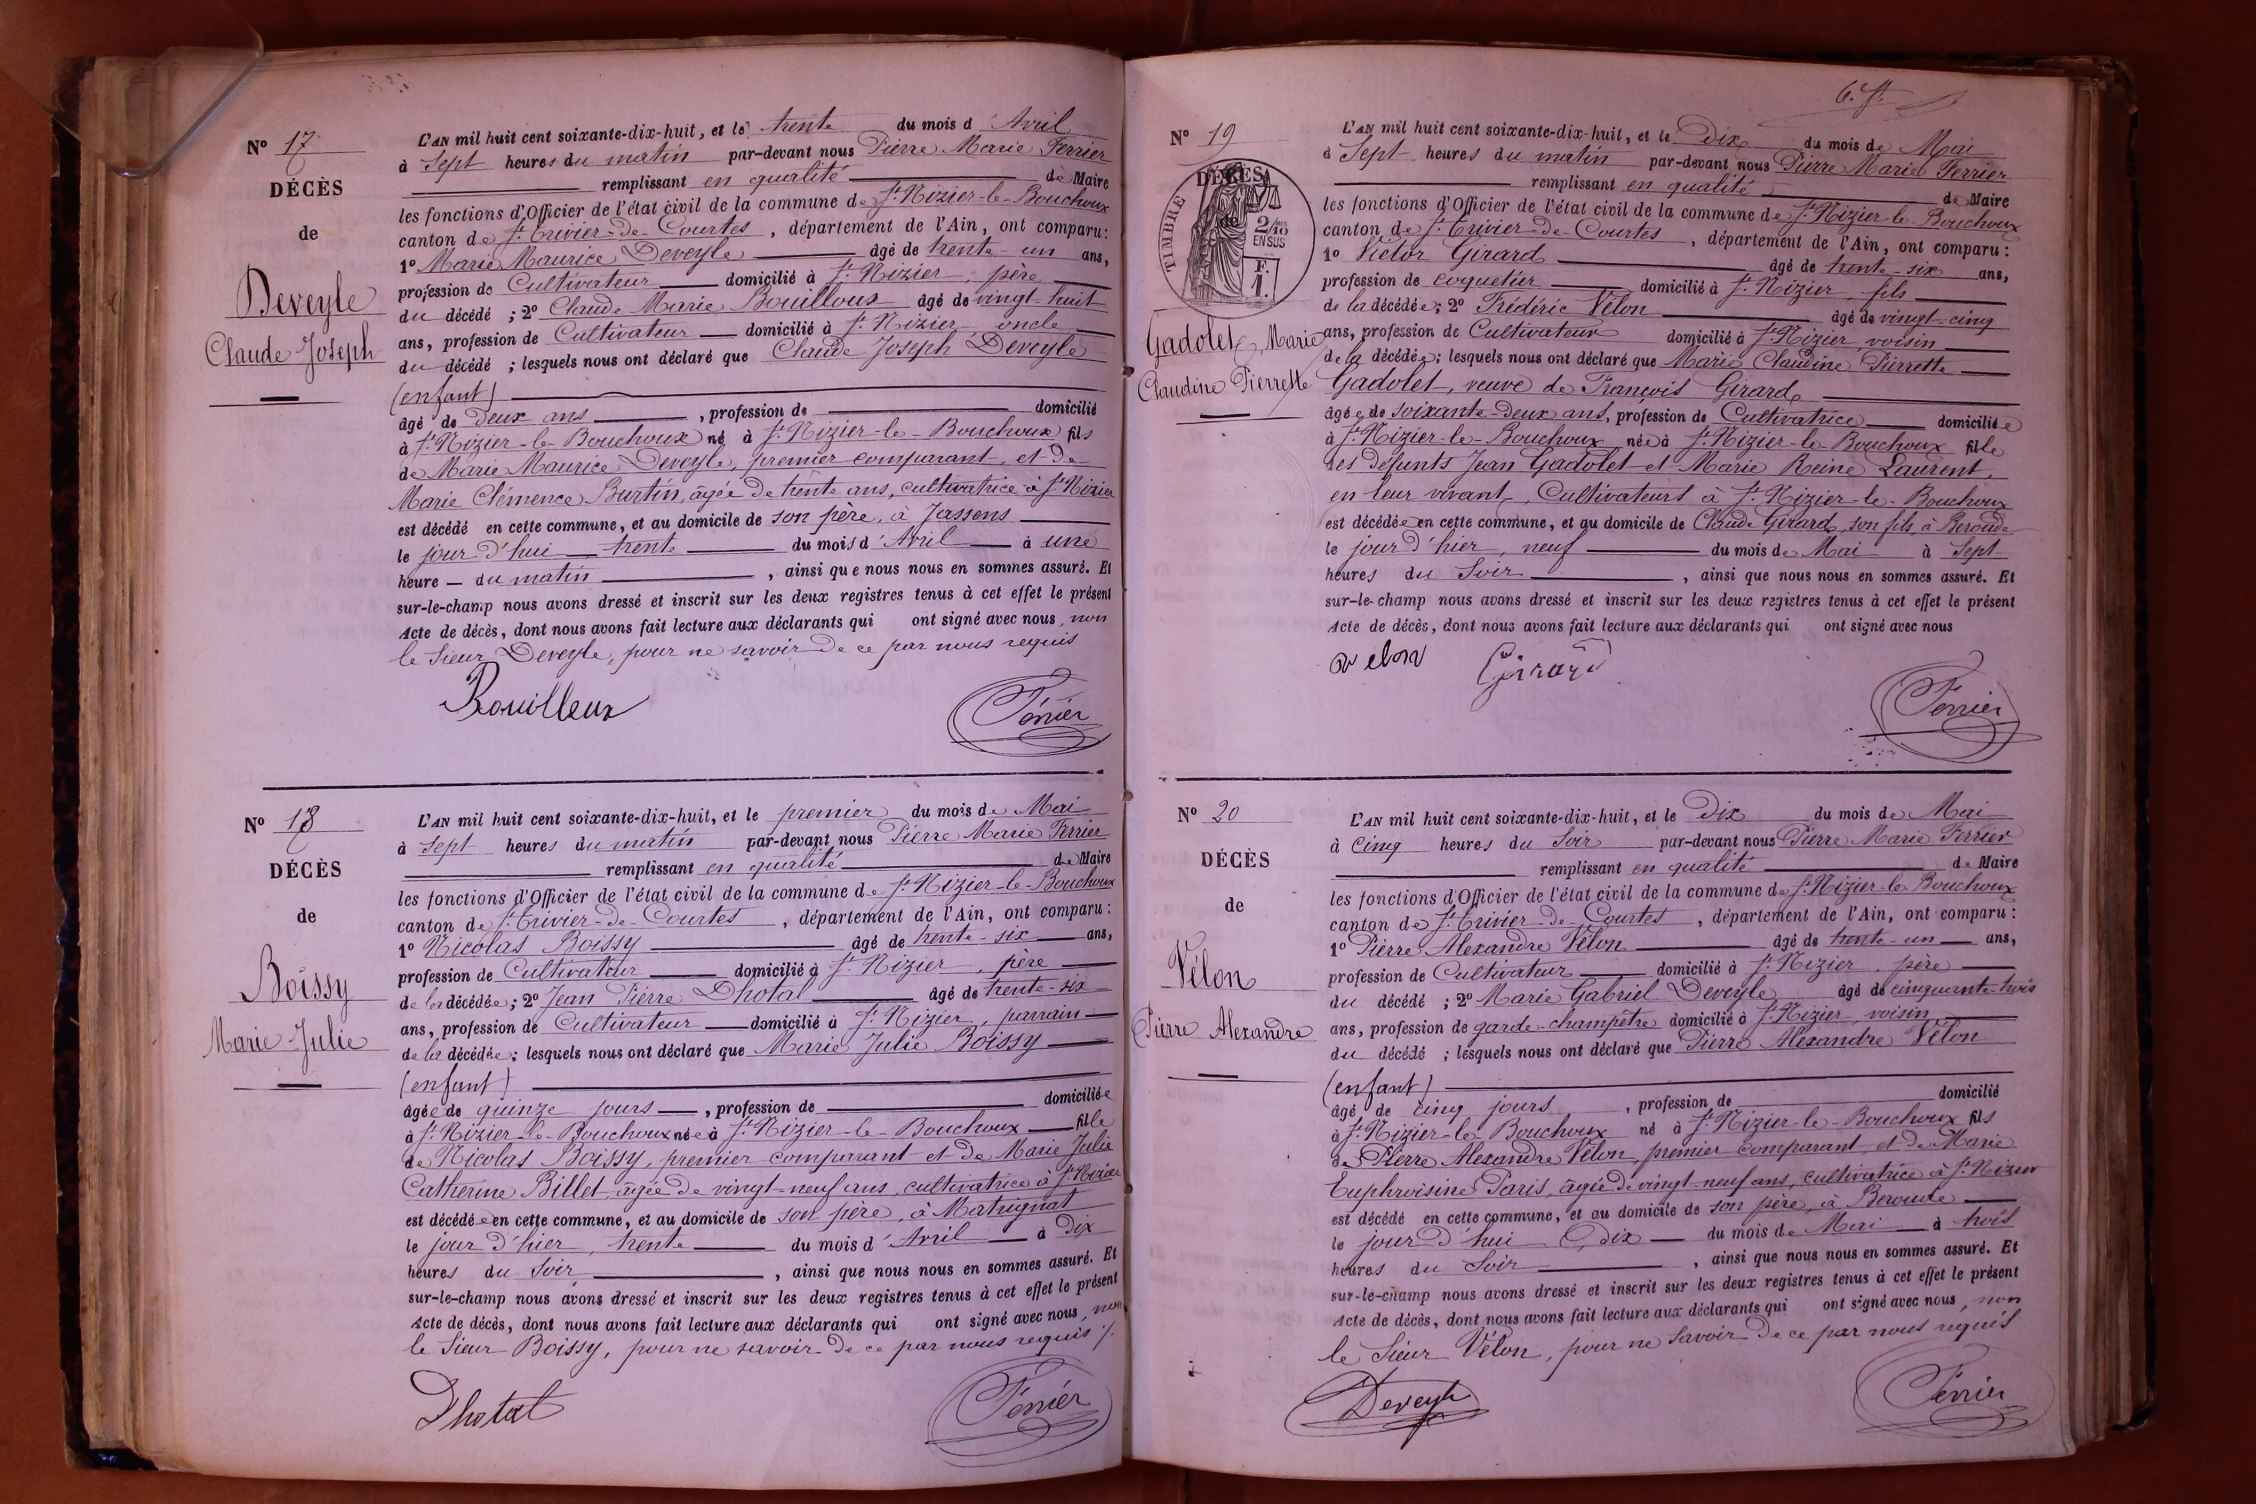 Nº 17
DÉCÈS
de
Deveyle
Claude Joseph
L'AN mil huit cent soixante-dix-huit, et le trente du mois d'Avril
à Sept heures du matin par-devant nous Pierre Marie Ferrier
remplissant en qualité de Maire
les fonctions d'Officier de l'état civil de la commune de St Nizier-le-Bouchoux
canton de St Trivier-de-Courtes, département de l'Ain, ont comparu:
1º Marie Maurice Deveyle âgé de trente-un ans,
profession de Cultivateur domicilié à St Nizier, père
du décédé ; 2º Claude Marie Bouilloux âgé de vingt-huit
ans, profession de Cultivateur domicilié à St Nizier, oncle
du décédé ; lesquels nous ont déclaré que Claude Joseph Deveyle
(enfant)
âgé de deux ans, profession de domicilié
à St Nizier-le-Bouchoux né à St Nizier-le-Bouchoux fils
de Marie Maurice Deveyle, premier comparant, et de
Marie Clémence Burtin, âgée de trente ans, cultivatrice à St Nizier
est décédé en cette commune, et au domicile de son père, à Jassens
le jour d'hui trente du mois d'Avril à une
heure du matin, ainsi que nous nous en sommes assuré. Et
sur-le-champ nous avons dressé et inscrit sur les deux registres tenus à cet effet le présent
Acte de décès, dont nous avons fait lecture aux déclarants qui ont signé avec nous, non
le Sieur Deveyle, pour ne savoir de ce par nous requis
Bouilloux Ferrier
Nº 18
DÉCÈS
de
Boissy
Marie Julie
L'AN mil huit cent soixante-dix-huit, et le premier du mois de Mai
à Sept heures du matin par-devant nous Pierre Marie Ferrier
remplissant en qualité de Maire
les fonctions d'Officier de l'état civil de la commune de St Nizier-le-Bouchoux
canton de St Trivier-de-Courtes, département de l'Ain, ont comparu:
1º Nicolas Boissy âgé de trente-six ans,
profession de Cultivateur domicilié à St Nizier, père
de la décédée; 2º Jean Pierre Dhotal âgé de trente-six
ans, profession de Cultivateur domicilié à St Nizier, parrain
de la décédée; lesquels nous ont déclaré que Marie Julie Boissy
(enfant)
âgée de quinze jours, profession de domiciliée
à St Nizier-le-Bouchoux née à St Nizier-le-Bouchoux fille
de Nicolas Boissy, premier comparant et de Marie Julie
Catherine Billet, âgée de vingt-neuf ans, cultivatrice à St Nizier
est décédée en cette commune, et au domicile de son père, à Matrignat
le jour d'hier, trente du mois d'Avril à dix
heures du Soir, ainsi que nous nous en sommes assuré. Et
sur-le-champ nous avons dressé et inscrit sur les deux registres tenus à cet effet le présent
Acte de décès, dont nous avons fait lecture aux déclarants qui ont signé avec nous, non
le Sieur Boissy, pour ne savoir de ce par nous requis ./.
Dhotal Ferrier
Nº 19
DÉCÈS
de
TIMBRE
2/10
EN SUS
F.
1.
Gadolet, Marie
Claudine Pierrette
L'AN mil huit cent soixante-dix-huit, et le Dix du mois de Mai
à Sept heures du matin par-devant nous Pierre Marie Ferrier
remplissant en qualité de Maire
les fonctions d'Officier de l'état civil de la commune de St Nizier-le-Bouchoux
canton de St Trivier-de-Courtes, département de l'Ain, ont comparu:
1º Victor Girard âgé de trente-six ans,
profession de coquetier domicilié à St Nizier, fils
de la décédée; 2º Frédéric Vélon âgé de vingt-cinq
ans, profession de Cultivateur domicilié à St Nizier, voisin
de la décédée; lesquels nous ont déclaré que Marie Claudine Pierrette
Gadolet, veuve de François Girard,
âgée de soixante-deux ans, profession de Cultivatrice domiciliée
à St Nizier-le-Bouchoux née à St Nizier-le-Bouchoux fille
des défunts Jean Gadolet et Marie Reine Laurent,
en leur vivant, Cultivateurs à St Nizier-le-Bouchoux
est décédée en cette commune, et au domicile de Claude Girard, son fils, à Beroude
le jour d'hier, neuf du mois de Mai à Sept
heures du Soir, ainsi que nous nous en sommes assuré. Et
sur-le-champ nous avons dressé et inscrit sur les deux registres tenus à cet effet le présent
Acte de décès, dont nous avons fait lecture aux déclarants qui ont signé avec nous
Velon Girard Ferrier
Nº 20
DÉCÈS
de
Vélon
Pierre Alexandre
L'AN mil huit cent soixante-dix-huit, et le Dix du mois de Mai
à Cinq heures du Soir par-devant nous Pierre Marie Ferrier
remplissant en qualité de Maire
les fonctions d'Officier de l'état civil de la commune de St Nizier-le-Bouchoux
canton de St Trivier-de-Courtes, département de l'Ain, ont comparu:
1º Pierre Alexandre Vélon âgé de trente-un ans,
profession de Cultivateur domicilié à St Nizier, père
du décédé ; 2º Marie Gabriel Deveyle âgé de cinquante-trois
ans, profession de garde-champêtre domicilié à St Nizier, voisin
du décédé ; lesquels nous ont déclaré que Pierre Alexandre Vélon
(enfant)
âgé de cinq jours, profession de domicilié
à St Nizier-le-Bouchoux né à St Nizier-le-Bouchoux fils
de Pierre Alexandre Vélon, premier comparant, et de Marie
Euphroisine Paris, âgée de vingt-neuf ans, cultivatrice à St Nizier
est décédé en cette commune, et au domicile de son père, à Beroude
le jour d'hui dix du mois de Mai à trois
heures du Soir, ainsi que nous nous en sommes assuré. Et
sur-le-champ nous avons dressé et inscrit sur les deux registres tenus à cet effet le présent
Acte de décès, dont nous avons fait lecture aux déclarants qui ont signé avec nous, non
le Sieur Vélon, pour ne savoir de ce par nous requis
Deveyle Ferrier